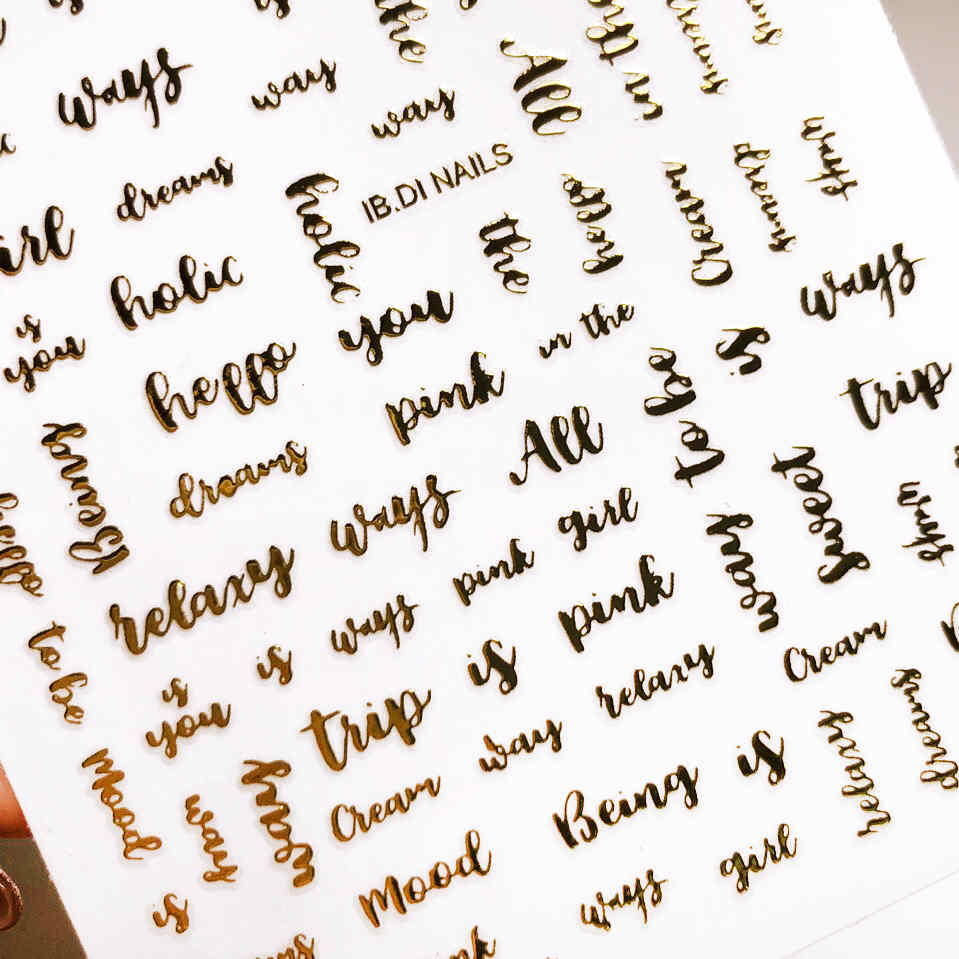 is
the
ways
way
way
All
dreams
IB.DI NAILS
holic
the
hello
Cream
dreams
ways
holic
you
in the
is
ways
is
you
hello
pink
to be
trip
Being
dreams
ways
All
sweet
ways
hello
relaxy
pink
girl
way
to be
is
ways
is
pink
Cream
is
you
trip
way
relaxy
Mood
way
way
Cream
Being
is
relaxy
dreams
is
Mood
ways
girl